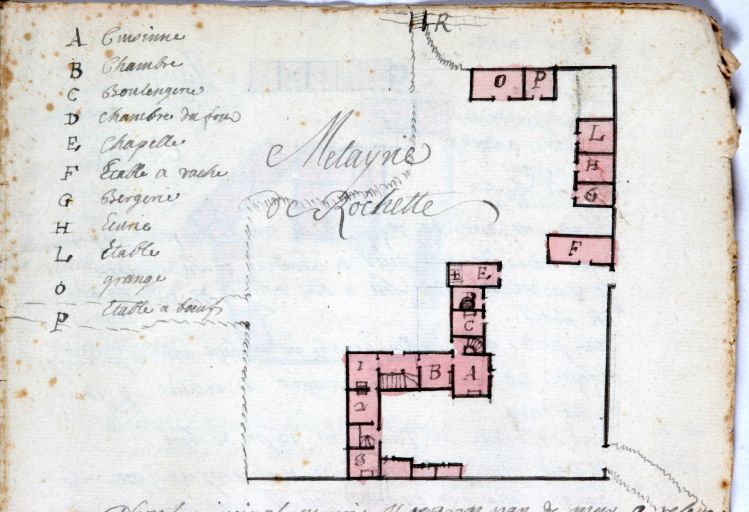 A Cuisinne
B Chambre
C Boulengerie
D Chambre du four
E Chapelle
F Etable a vache
G Bergerie
H Ecurie
L Etable
O grange
P Etable a bœufs
R
Metayrie
de Rochette
O P
L
H
G
F
E
D
C
1 B A
2
3